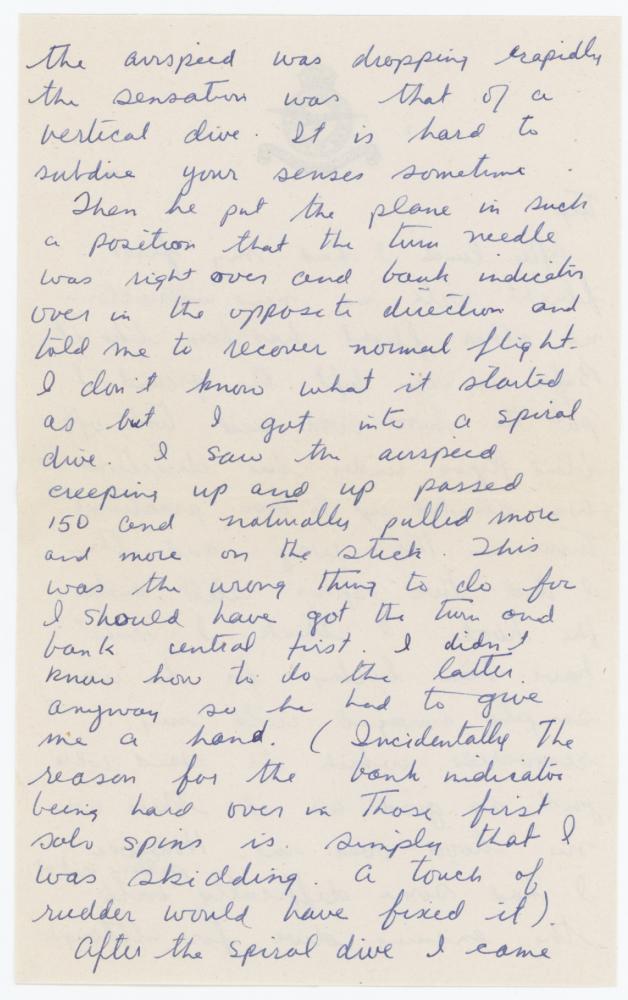 the airspeed was dropping rapidly
the sensation was that of a
vertical dive. It is hard to
subdue your senses sometime.
Then he put the plane in such
a position that the turn needle
was right over and bank indicator
over in the opposite direction and
told me to recover normal flight.
I don't know what it started
as but I got into a spiral
dive. I saw the airspeed
creeping up and up passed
150 and naturally pulled more
and more on the stick. This
was the wrong thing to do for
I should have got the turn and
bank central first. I didn't
know how to do the latter.
anyway so he had to give
me a hand. (Incidentally The
reason for the bank indicator
being hard over in Those first
solo spins is simply that I
was skidding. A touch of
rudder would have fixed it).
After the spiral dive I came